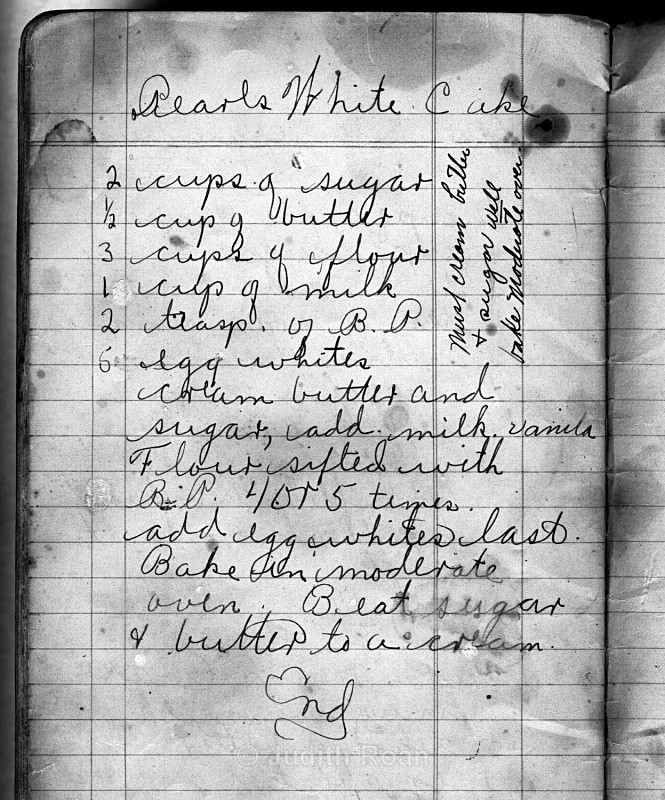 Pearls White Cake
2 cups of sugar
½ cup of butter
3 cups of flour
1 cup of milk
2 teasp. of B.P.
6 egg whites
cream butter and
sugar, add milk, vanila
Flour sifted with
B.P. 4 or 5 times.
add egg whites last.
Bake in moderate
oven. Beat sugar
& butter to a cream.
End
Must cream butter
+ sugar well
bake Moderate oven.
© Judith Roan